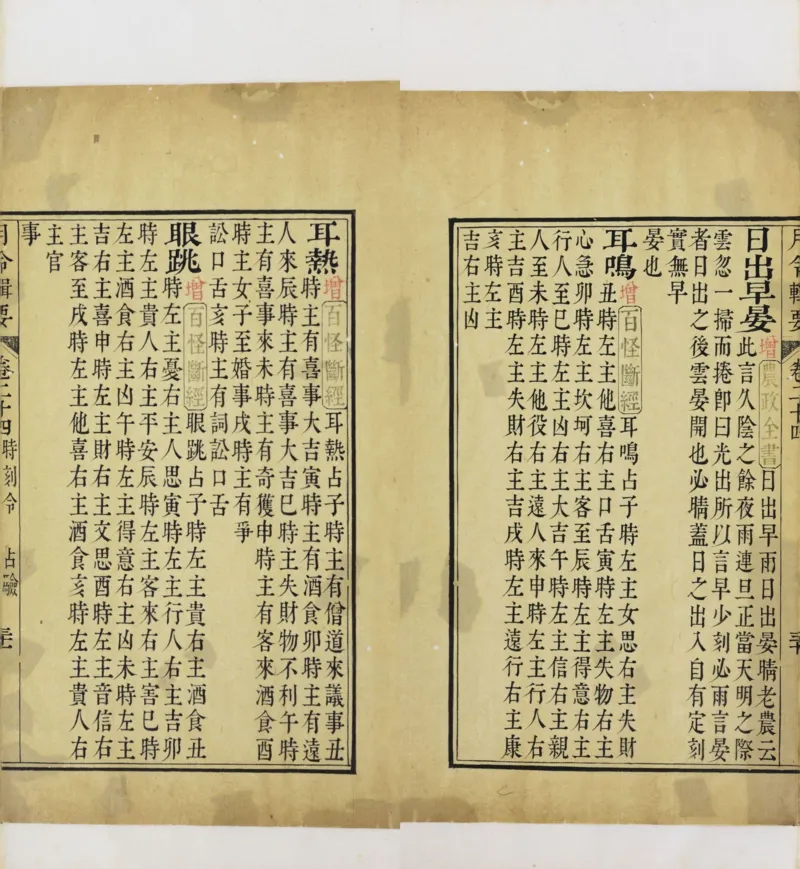 月令輯要 卷二十四
日出早晏 增 農政全書 日出早雨日出晏晴老農云
此言久陰之餘夜雨連旦正當天明之際
雲忽一掃而捲卽日光出所以言早少刻必雨言晏
者日出之後雲晏開也必晴蓋日之出入自有定刻
實無早
晏也
耳鳴 增 百怪斷經 耳鳴占子時左主女思右主失財
丑時左主他喜右主口舌寅時左主失物右主
心急卯時左主坎坷右主客至辰時左主得意右主
行人至巳時左主凶右主大吉午時左主信右主親
人至未時左主他役右主遠人來申時左主行人右
主吉酉時左主失財右主吉戌時左主遠行右主康
亥時左主
吉右主凶
耳熱 增 百怪斷經 耳熱占子時主有僧道來議事丑
時主有喜事大吉寅時主有酒食卯時主有遠
人來辰時主有喜事大吉巳時主失財物不利午時
主有喜事來未時主有奇獲申時主有客來酒食酉
時主女子至婚事戌時主有爭
訟口舌亥時主有詞訟口舌
眼跳 增 百怪斷經 眼跳占子時左主貴右主酒食丑
時左主憂右主人思寅時左主行人右主吉卯
時左主貴人右主平安辰時左主客來右主害巳時
左主酒食右主凶午時左主得意右主凶未時左主
吉右主喜申時左主財右主文思酉時左主音信右
主客至戌時左主他喜右主酒食亥時左主貴人右
主官
事
月令輯要 卷二十四 時刻令 占驗